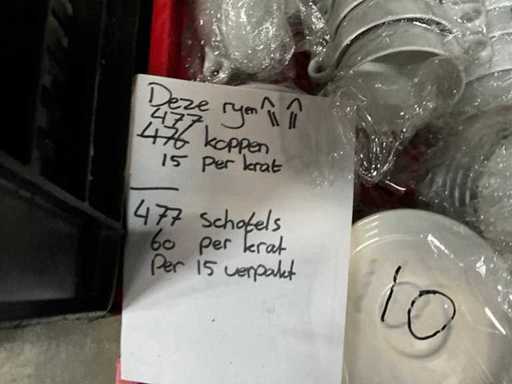 Deze ryen ⇑ ⇑
477
476 koppen
15 per krat
477 schotels
60 per krat
Per 15 verpakt
10